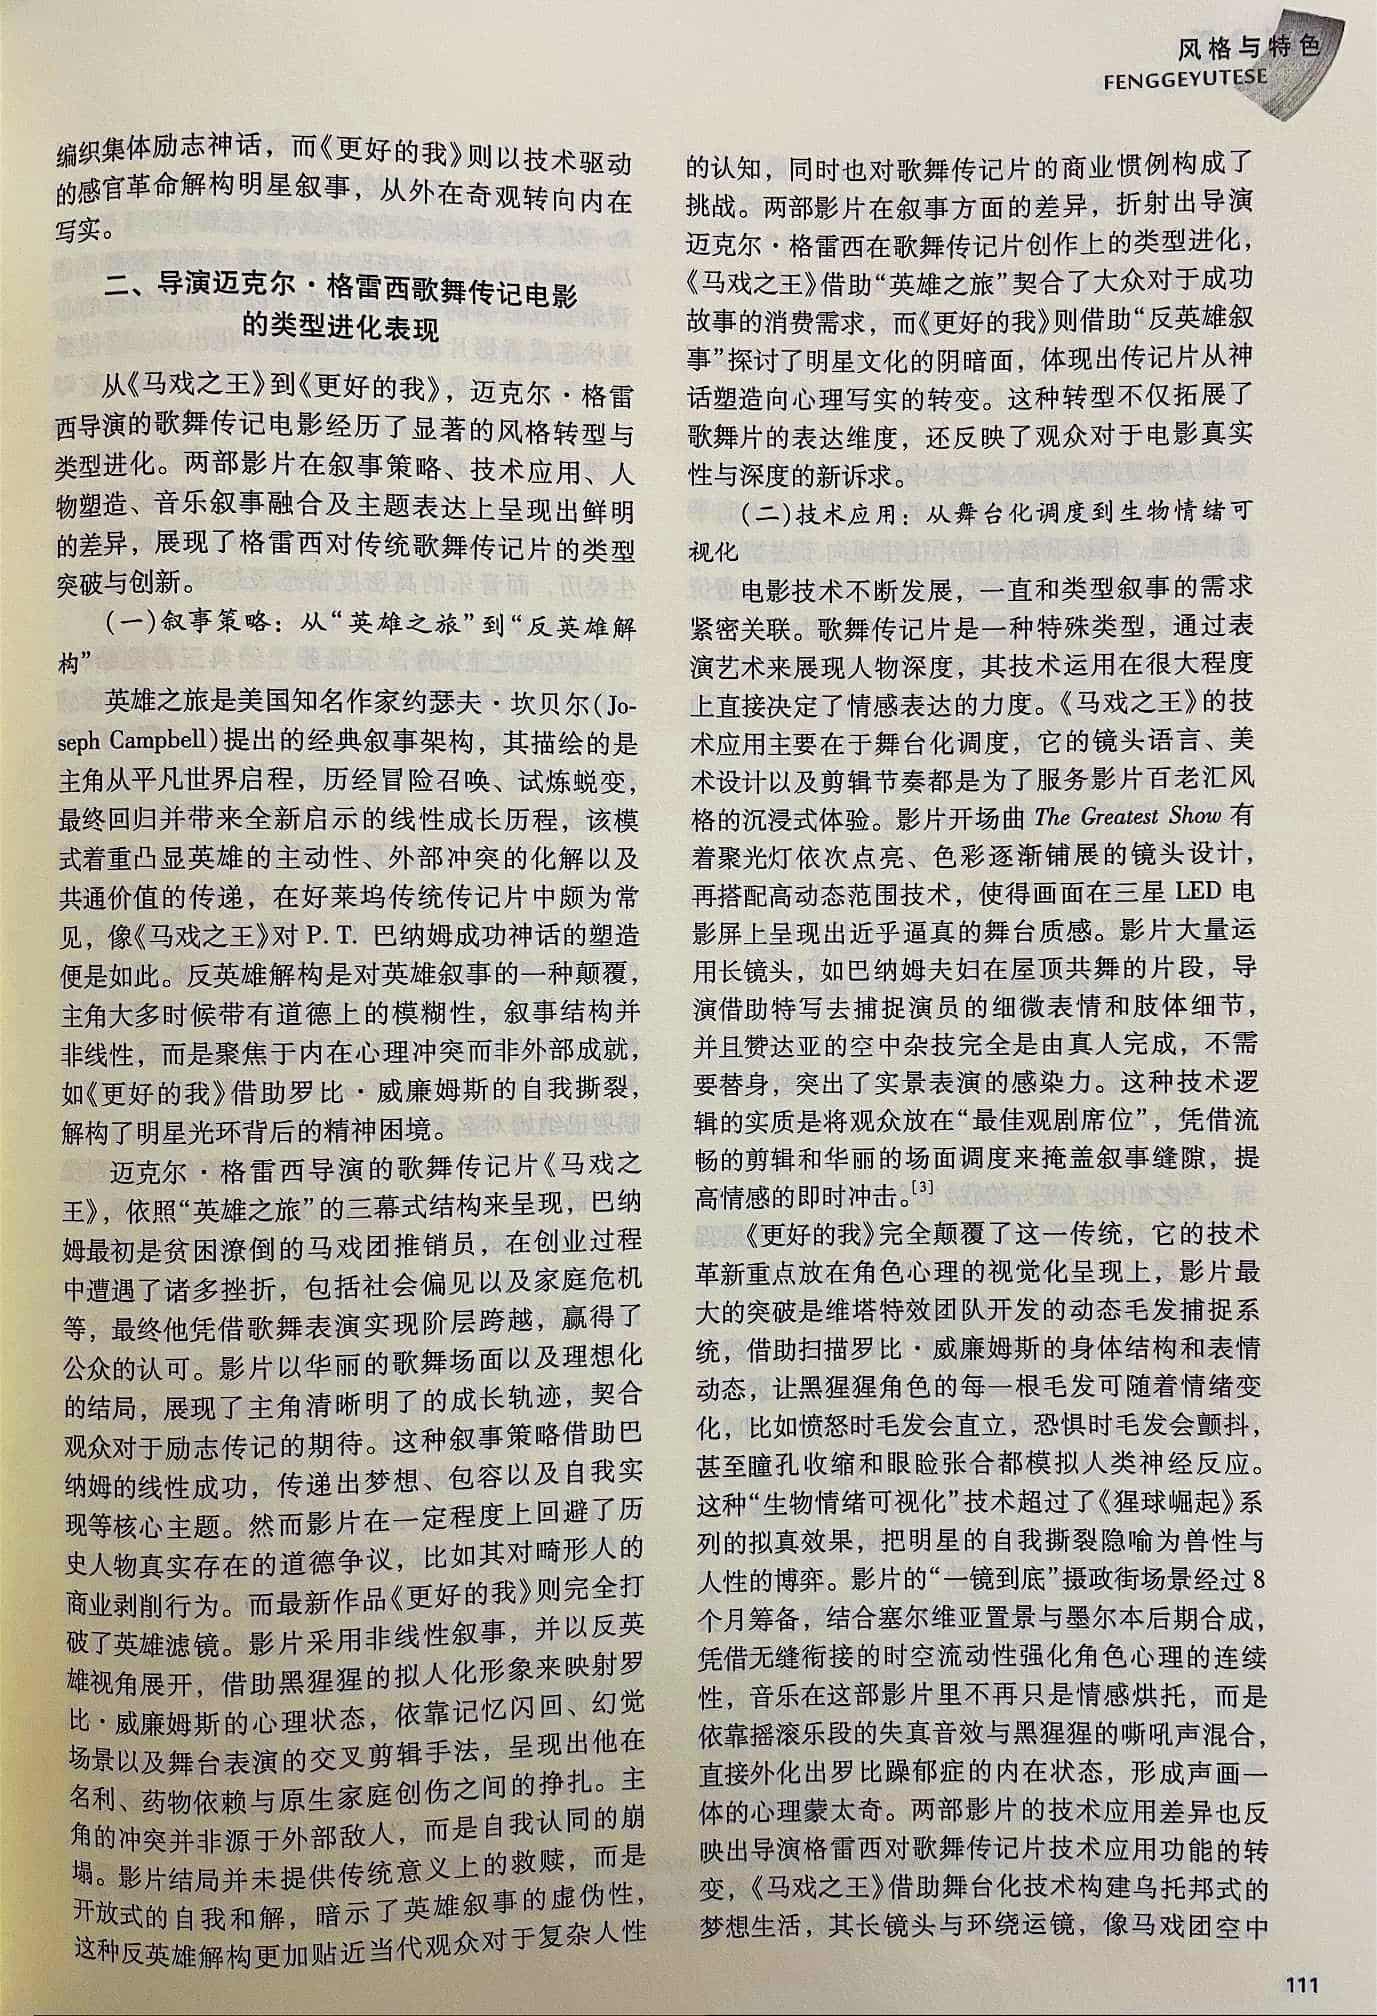 风格与特色
FENGGEYUTESE
编织集体励志神话，而《更好的我》则以技术驱动
的感官革命解构明星叙事，从外在奇观转向内在
写实。
二、导演迈克尔·格雷西歌舞传记电影
的类型进化表现
从《马戏之王》到《更好的我》，迈克尔·格雷
西导演的歌舞传记电影经历了显著的风格转型与
类型进化。两部影片在叙事策略、技术应用、人
物塑造、音乐叙事融合及主题表达上呈现出鲜明
的差异，展现了格雷西对传统歌舞传记片的类型
突破与创新。
(一)叙事策略：从“英雄之旅”到“反英雄解
构”
英雄之旅是美国知名作家约瑟夫·坎贝尔(Jo-
seph Campbell)提出的经典叙事架构，其描绘的是
主角从平凡世界启程，历经冒险召唤、试炼蜕变，
最终回归并带来全新启示的线性成长历程，该模
式着重凸显英雄的主动性、外部冲突的化解以及
共通价值的传递，在好莱坞传统传记片中颇为常
见，像《马戏之王》对 P. T. 巴纳姆成功神话的塑造
便是如此。反英雄解构是对英雄叙事的一种颠覆，
主角大多时候带有道德上的模糊性，叙事结构并
非线性，而是聚焦于内在心理冲突而非外部成就，
如《更好的我》借助罗比·威廉姆斯的自我撕裂，
解构了明星光环背后的精神困境。
迈克尔·格雷西导演的歌舞传记片《马戏之
王》，依照“英雄之旅”的三幕式结构来呈现，巴纳
姆最初是贫困潦倒的马戏团推销员，在创业过程
中遭遇了诸多挫折，包括社会偏见以及家庭危机
等，最终他凭借歌舞表演实现阶层跨越，赢得了
公众的认可。影片以华丽的歌舞场面以及理想化
的结局，展现了主角清晰明了的成长轨迹，契合
观众对于励志传记的期待。这种叙事策略借助巴
纳姆的线性成功，传递出梦想、包容以及自我实
现等核心主题。然而影片在一定程度上回避了历
史人物真实存在的道德争议，比如其对畸形人的
商业剥削行为。而最新作品《更好的我》则完全打
破了英雄滤镜。影片采用非线性叙事，并以反英
雄视角展开，借助黑猩猩的拟人化形象来映射罗
比·威廉姆斯的心理状态，依靠记忆闪回、幻觉
场景以及舞台表演的交叉剪辑手法，呈现出他在
名利、药物依赖与原生家庭创伤之间的挣扎。主
角的冲突并非源于外部敌人，而是自我认同的崩
塌。影片结局并未提供传统意义上的救赎，而是
开放式的自我和解，暗示了英雄叙事的虚伪性，
这种反英雄解构更加贴近当代观众对于复杂人性
的认知，同时也对歌舞传记片的商业惯例构成了
挑战。两部影片在叙事方面的差异，折射出导演
迈克尔·格雷西在歌舞传记片创作上的类型进化，
《马戏之王》借助“英雄之旅”契合了大众对于成功
故事的消费需求，而《更好的我》则借助“反英雄叙
事”探讨了明星文化的阴暗面，体现出传记片从神
话塑造向心理写实的转变。这种转型不仅拓展了
歌舞片的表达维度，还反映了观众对于电影真实
性与深度的新诉求。
(二)技术应用：从舞台化调度到生物情绪可
视化
电影技术不断发展，一直和类型叙事的需求
紧密关联。歌舞传记片是一种特殊类型，通过表
演艺术来展现人物深度，其技术运用在很大程度
上直接决定了情感表达的力度。《马戏之王》的技
术应用主要在于舞台化调度，它的镜头语言、美
术设计以及剪辑节奏都是为了服务影片百老汇风
格的沉浸式体验。影片开场曲 The Greatest Show 有
着聚光灯依次点亮、色彩逐渐铺展的镜头设计，
再搭配高动态范围技术，使得画面在三星 LED 电
影屏上呈现出近乎逼真的舞台质感。影片大量运
用长镜头，如巴纳姆夫妇在屋顶共舞的片段，导
演借助特写去捕捉演员的细微表情和肢体细节，
并且赞达亚的空中杂技完全是由真人完成，不需
要替身，突出了实景表演的感染力。这种技术逻
辑的实质是将观众放在“最佳观剧席位”，凭借流
畅的剪辑和华丽的场面调度来掩盖叙事缝隙，提
高情感的即时冲击。[3]
《更好的我》完全颠覆了这一传统，它的技术
革新重点放在角色心理的视觉化呈现上，影片最
大的突破是维塔特效团队开发的动态毛发捕捉系
统，借助扫描罗比·威廉姆斯的身体结构和表情
动态，让黑猩猩角色的每一根毛发可随着情绪变
化，比如愤怒时毛发会直立，恐惧时毛发会颤抖，
甚至瞳孔收缩和眼睑张合都模拟人类神经反应。
这种“生物情绪可视化”技术超过了《猩球崛起》系
列的拟真效果，把明星的自我撕裂隐喻为兽性与
人性的博弈。影片的“一镜到底”摄政街场景经过 8
个月筹备，结合塞尔维亚置景与墨尔本后期合成，
凭借无缝衔接的时空流动性强化角色心理的连续
性，音乐在这部影片里不再只是情感烘托，而是
依靠摇滚乐段的失真音效与黑猩猩的嘶吼声混合，
直接外化出罗比躁郁症的内在状态，形成声画一
体的心理蒙太奇。两部影片的技术应用差异也反
映出导演格雷西对歌舞传记片技术应用功能的转
变，《马戏之王》借助舞台化技术构建乌托邦式的
梦想生活，其长镜头与环绕运镜，像马戏团空中
111